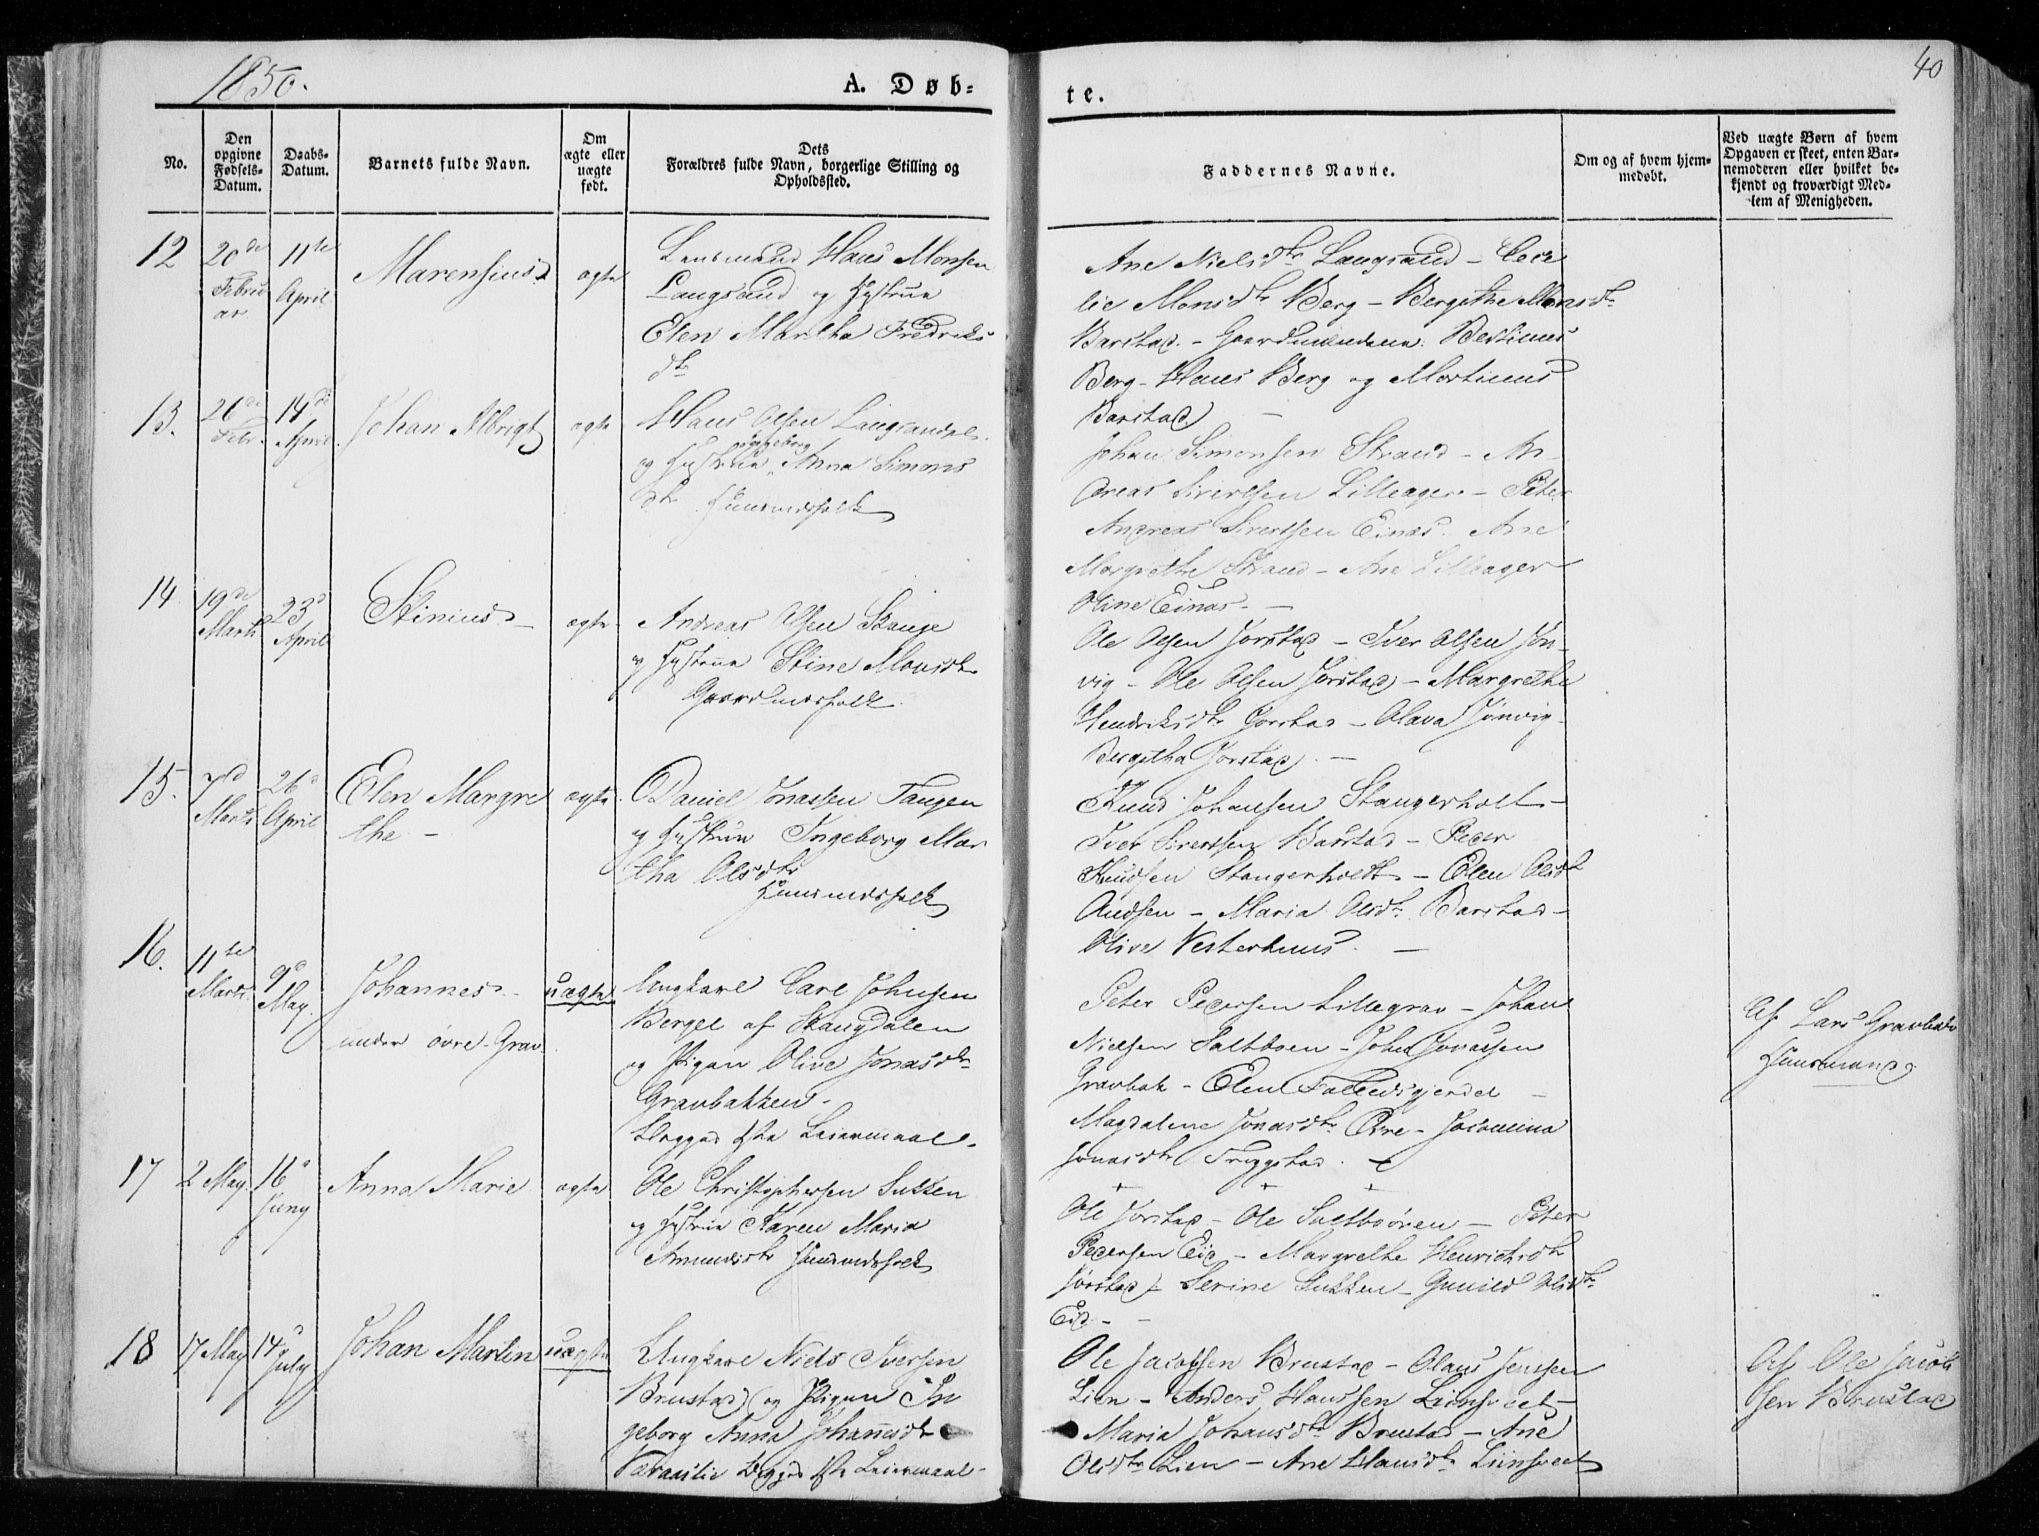 1850.
A. Døb-
te.
40
No.
Den opgivne Fødsels-Datum.
Daabs-Datum.
Barnets fulde Navn.
Om ægte eller uægte født.
Dets
Forældres fulde Navn, borgerlige Stilling og
Opholdssted.
Faddernes Navne.
Om og af hvem hjem-
medøbt.
Ved uægte Børn af hvem
Opgaven er skeet, enten Bar-
nemoderen eller hvilket be-
kjendt og troværdigt Med-
lem af Menigheden.
12
20de Februar
11te April
Marensius
ægte
Lensmand Hans Monsen
Langsand og Hystrue
Elen Martha Fredriks
dtr
Ane Nielsdtr Langsand - Ceci
lie Monsdtr Berg - Bergithe Monsdtr
Barstad - Gaardmændene: Bertinus
Berg - Hans Berg og Martinus
Barstad -
13.
26de Febr.
14de April
Johan Albrigt
ægte
Hans Olsen Langsandpl.
og Hystrue Ingeborg Anna Simons
dtr Huusmdsfolk
Johan Simonsen Strand - An
dreas Sivertsen Lilleager - Peter
Andreas Sivertsen Einas. Ane
Margrethe Strand - Ane Lilleager
Oline Einas. -
14
19de Marts
23d April
Stinius -
ægte
Andreas Olsen Skauge
og Hystrue Stine Monsdtr
Gaardmdsfolk
Ole Olsen Jørstad - Iver Olsen Jøn
vig - Ole Olsen Jørstad - Margrethe
Hendriksdtr Jørstad - Olava Jønvig
Bergitha Jørstad. -
15.
7d Marts
26d April
Elen Margre
the -
ægte
Daniel Jonassen Tangen
og Hystrue Ingeborg Mar
tha Olsdtr
Huusmdsfolk
Knud Johansen Stangerholt -
Iver Sivertsen Barstad - Peder
Knudsen Stangerholdt - Elen Olsdtr
Audsen - Maria Olsdtr Barstad -
Olive Vesterhuus. -
16.
11te Marts
9d May.
Johannes -
under övre Grav
uægte
Ungkarl Carl Johnsen
Bergel af Skaugdalen
og Pigen Olive Jonasdtr
Gravbakken.
Begges 1ste Leiermaal.
Peter Pedersen Lillegrav - Johan
Nielsen Saltboen - Johan Jonassen
Gravbak - Elen Følledsgjerdet -
Magdalene Jonasdtr Øvre - Jacomina
Jonasdtr Tryggstad.
Af Lars Gravbak
Huusmand.
17
2 May
16d Juny
Anna Marie
ægte
Ole Christophersen Sukken
og Hystrue Karen Maria
Amundsdtr Huusmdsfolk
Ole Jørstad - Ole Saltboören - Peter
Pedersen Eid - Margrethe Henrichsdtr
Jørstad - Serine Sukken - Gunild Olsdtr
Eid -
18
17 May
14d July
Johan Martin
uægte
Ungkarl Niels Iversen
Brustad og Pigen In
geborg Anna Johannisdtr
Begges 1ste Leiermaal -
Ole Jacobsen Brustad - Olaus Jenssen
Lien - Anders Hanssen Liinsveet -
Maria Johansdtr Brustad - Ane
Olsdtr Lien - Ane Hansdtr Liinsveet
Af Ole Jacob
sen Brustad